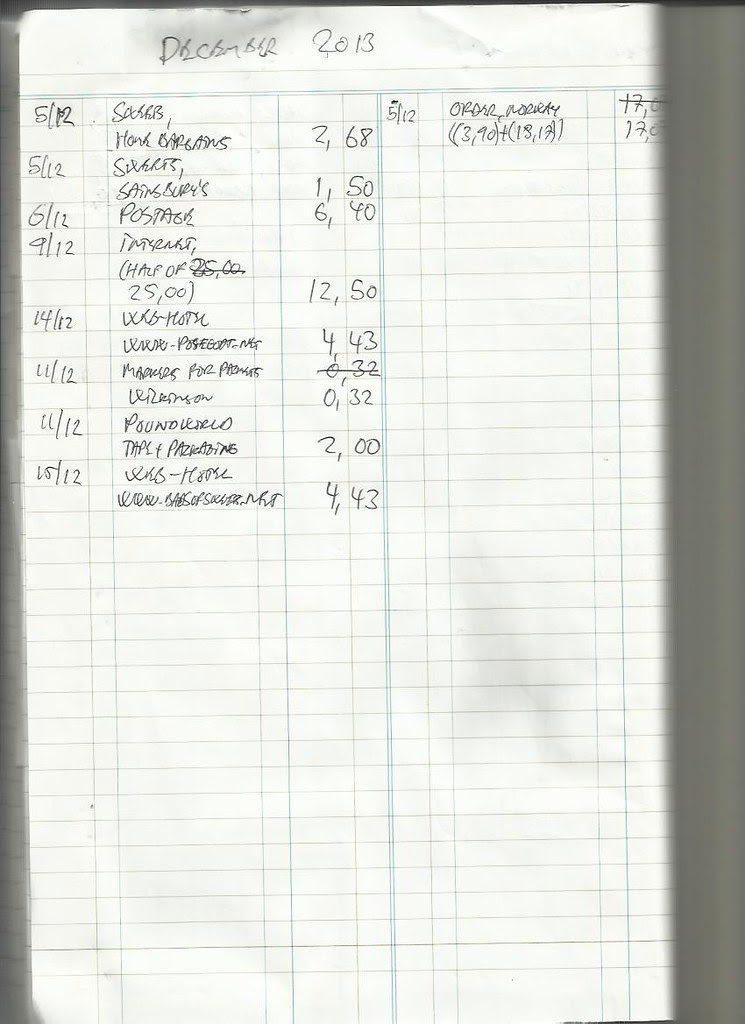 DECEMBER 2013
5/12 SWEETS,
HOME BARGAINS 2,68
5/12 SWEETS,
SAINSBURY'S 1,50
6/12 POSTAGE 6,40
9/12 INTERNET,
(HALF OF 25,00
25,00) 12,50
14/12 WEB-HOTEL
4,43
11/12 MARKERS FOR 0,32
WILKINSON 0,32
11/12 POUNDWORLD
TAPE + PACKAGING 2,00
15/12 WEB-HOTEL
WWW.BAGSOFSWEETS.NET 4,43
5/12 ORDER, NORWAY 17,0
((3,90)+(13,17)) 17,0